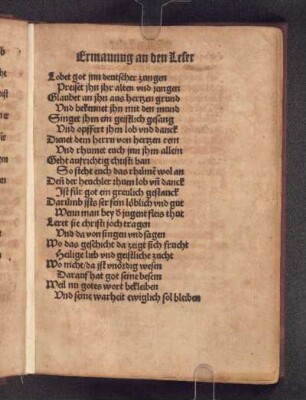 Ermanung an den Leser
Lobet got jnn deutscher zungen
Preiset jhn jhr alten vnd jungen
Glaubet an jhn aus hertzen grund
Vnd bekennet jhn mit dem mund
Singet jhm ein geistlich gesang
Vnd opffert jhm lob vnd danck
Dienet dem herrn von hertzen rein
Vnd rhumet euch jnn jhm allein
Geht auffrichtig christi ban
So steht euch das rhümē wol an
Deñ der heuchler rhum lob vñ danck
Ist für got ein greulich gestanck
Darumb ists ser fein löblich vnd gut
Wenn man bey d' jugent fleis thut
Leret sie christi joch tragen
Vnd da von singen vnd sagen
Wo das geschicht da zeigt sich frucht
Heilige lieb vnd geistliche zucht
Wo nicht/ da ist vnördig wesen
Darauf hat got seine besem
Weil nu gotes wort bekleiben
Vnd seine warheit ewiglich sol bleiben